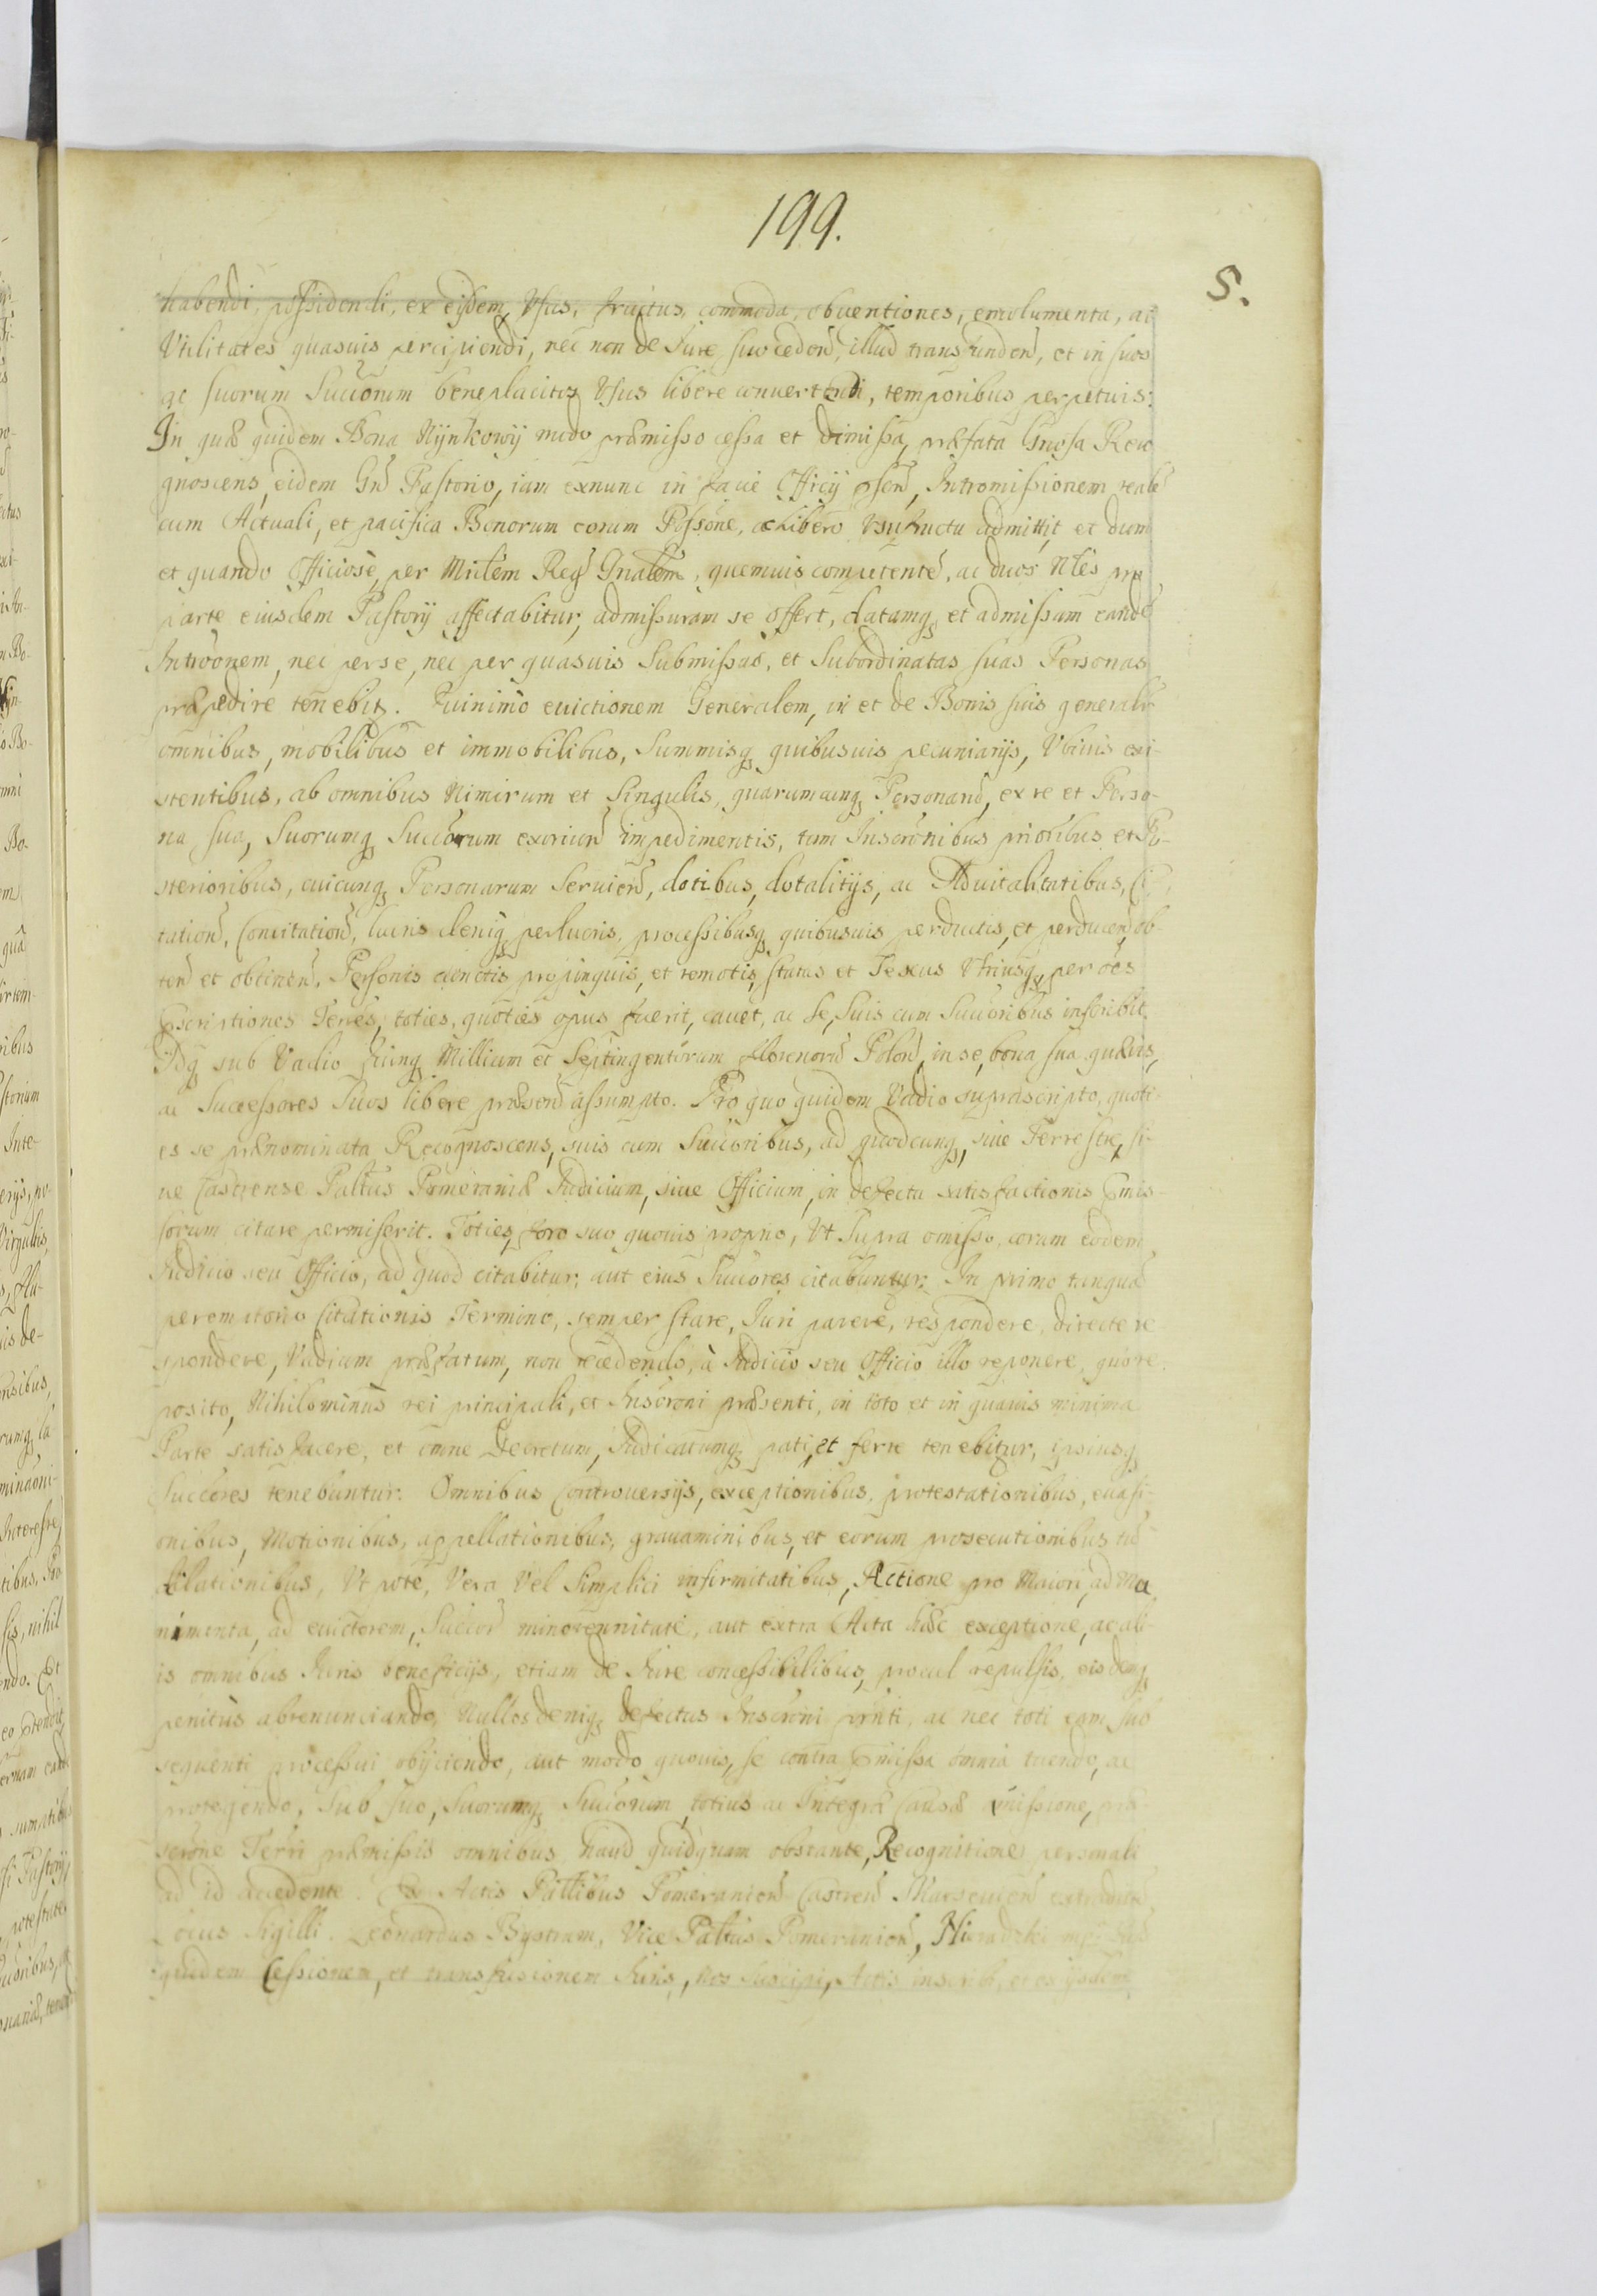 199.
5.
habendi, possidendi, ex eijsdem Usus, fructus, commoda, obuentiones, emolumenta, ac
Utilitates quasuis percipiendi, nec non de Jure succedend, illud transfundend, et in suos
ac suorum Succorum beneplacitos Usus libere conuertendi, temporibus perpetuis:
In quæ quidem Bona Nijnkowij modo præmisso cessa et dimissa, præfata Gnosa Reco
gnoscens, eidem Gnd Pastorio, iam exnunc in facie Officij psen, Intromissionem reale
cum Actuali, et pacifica Bonorum eorum Possone, ac libero Usufructu admittit et dum
et quando Officiose, per Mintem Reg Gnalem, quemuis competente, ac duos Nles pro
parte eiusdem Pastorij affectabitur, admissuram se offert, datamq et admissam eande
Intromonem, nec per se, nec per quasuis Submissas, et Subordinatas suas Personas
præpedire tenebit. Quinimo euictionem Generalem, in et de Bonis suis generalr
omnibus, mobilibus et immobilibus, Summisq quibusuis pecuniarijs, Ubiuis exi-
stentibus, ab omnibus Nimirum et Singulis, quarumcunq Personarud, ex re et Perso-
na sua, Suorumq Succorum exoriend impedimentis, tum Inscronibus prioribus et Po-
sterioribus, cuicunq Personarum Seruiend, dotibus, dotalitijs, ac Aduitalitatibus, Ci-
tation, Concitation, lucris deniq perlucris, processibusq quibusuis perductis, et perducend, ob-
ten et obtinend, Personis cunctis propinquis, et remotis, status et Sexus Utriusq, per oes
pscriptiones Terres, toties, quoties opus fuerit, cauet, ac se, Suis cum Succoribus inscribit
Idq sub Vadio Quinq Millium et Septingentorum florenorud Polond, in se, bona sua quæuis,
ac Successores Suos libere præsend assumpto. Pro quo quidem Vadio suprascripto, quoti-
es se prænominata Recognoscens, suis cum Succoribus, ad quodcunq, siue Terrestre, si-
ue Castrense Paltus Pomeraniæ Judicium, siue Officium, in defectu satisfactionis pmis-
sorum citare permiserit. Toties, foro suo quouis proprio, Ut Supra omisso, coram eodem
Judicio seu Officio, ad quod citabitur, aut eius Succores citabuntur: In primo tanquã
peremptorio Citationis Termino, semper stare, Juri parere, respondere, directe re
spondere, Vadium præfatum, non recedendo, à Judicio seu Officio illo reponere, quo re
posito, Nihilominus rei principali, et Inscroni præsenti, in toto et in quauis minima
Parte satisfacere, et omne Decretum, Judicatumq pati, et ferre tenebitur, ipsiusq
Succores tenebuntur. Omnibus Controuersijs, exceptionibus, protestationibus, euasi-
onibus, Motionibus, appellationibus, grauaminibus, et eorum prosecutionibus tu
dilationibus, Ut pote, Vera Vel Simplici infirmitatibus, Actione pro Maiori, ad Mu
nimenta, ad euictorem, Succor minorennitate, aut extra Acta hæc exceptione, ac ali-
is omnibus Juris beneficijs, etiam de Jure concessibilibus, procul repulsis, eisdemq
penitùs abrenunciando, Nullos deniq defectus Inscroni prnti, ac nec toti eam sub
sequenti processui obijciendo, aut modo quouis, se contra pmissa omnia tuendo, ac
protegendo, Sub suo, Suorumq Succorum totius ac Integræ Causæ amissione, præ
scrone Terri præmissis omnibus haud quidquam obstante, Recognitione personali
ad id accedente. Ex Actis Pattibus Pomeranien Castren Skarseuien extraditu
Locus Sigilli. Leonardus Bystram, Vice Paltus Pomeranien,
quidem Cessionem, et transfusionem Juris, nos suscipi, Actis inscrib, et ex ijsdem